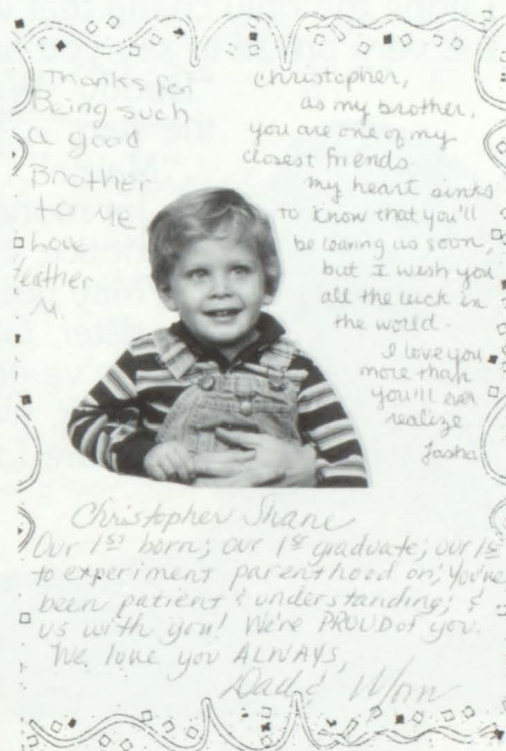 Thanks for
Being such
a good
Brother
to Me
Love
Heather
M.
Christopher,
as my brother,
you are one of my
closest friends.
My heart sinks
to know that you'll
be leaving us soon,
but I wish you
all the luck in
the world.
I love you
more than
you'll ever
realize
Tasha
Christopher Shane
Our 1st born; our 1st graduate; our 1st
to experiment parenthood on; You've
been patient & understanding; &
us with you! We're PROUD of you.
We love you ALWAYS,
Dad & Mom